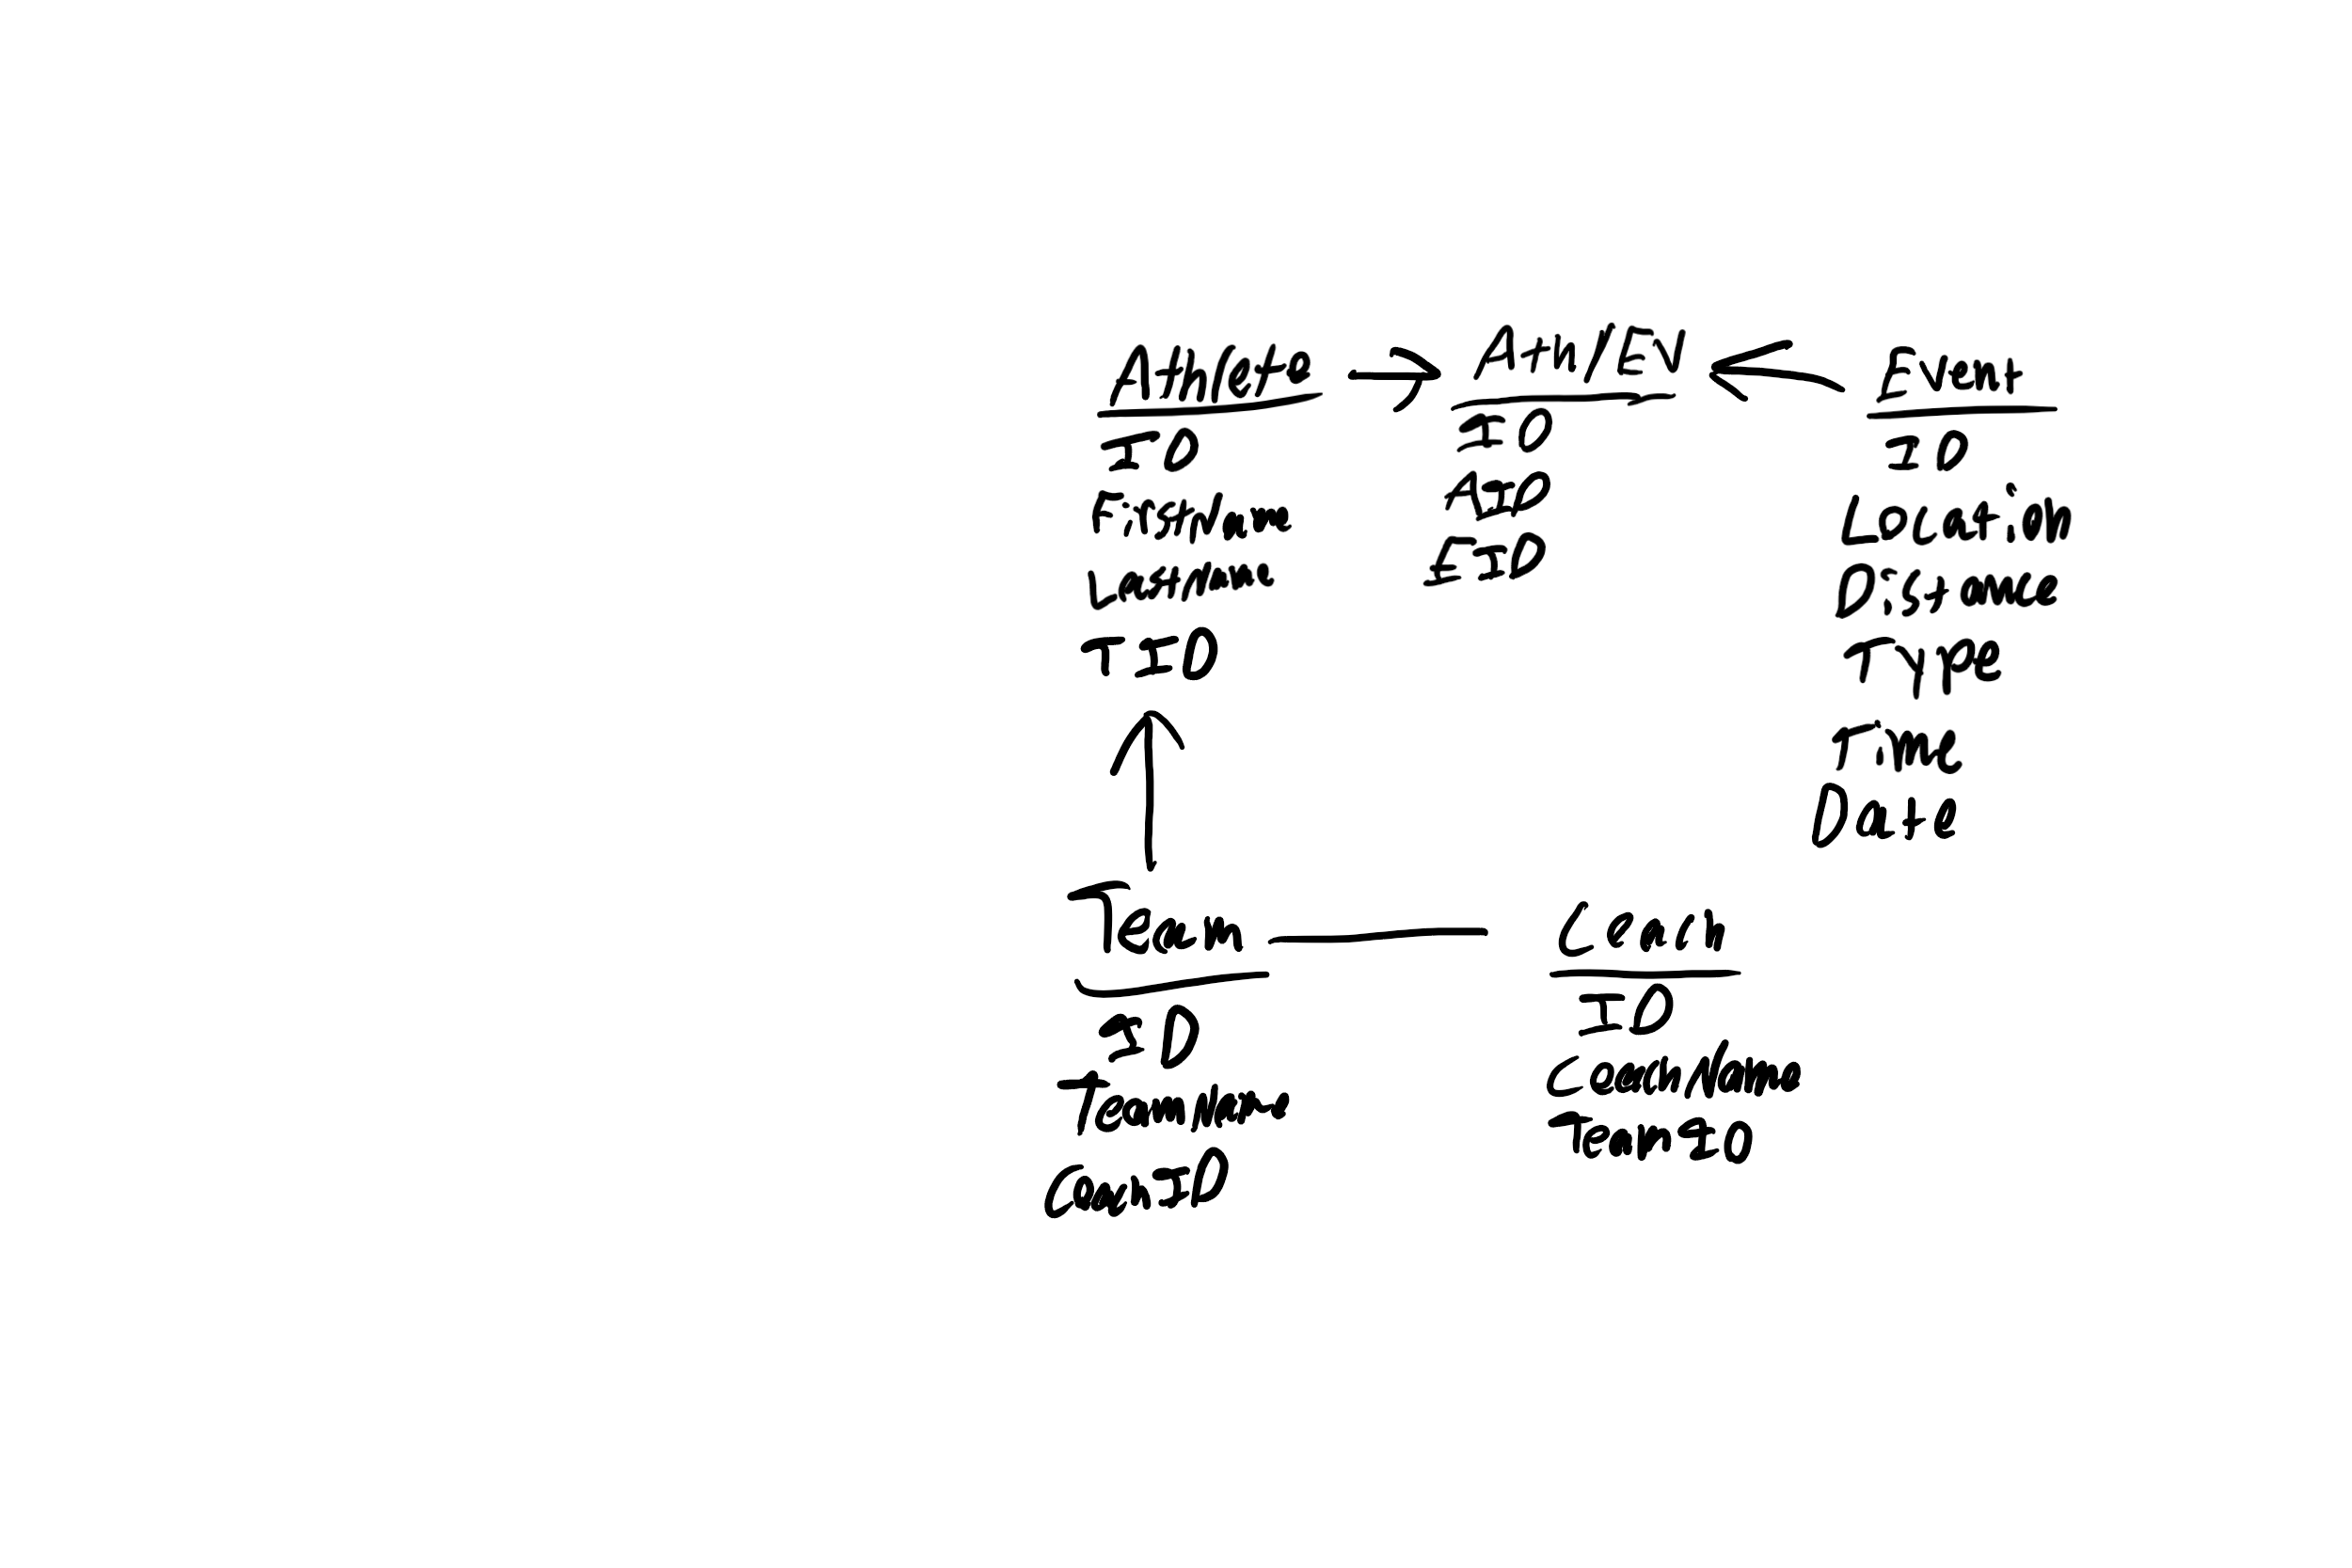 Athlete
ID
FirstName
LastName
TID
Ath/EV
ID
AID
EID
Event
ID
Location
Distance
Type
Time
Date
Team
ID
TeamName
CoachID
Coach
ID
CoachName
TeamID